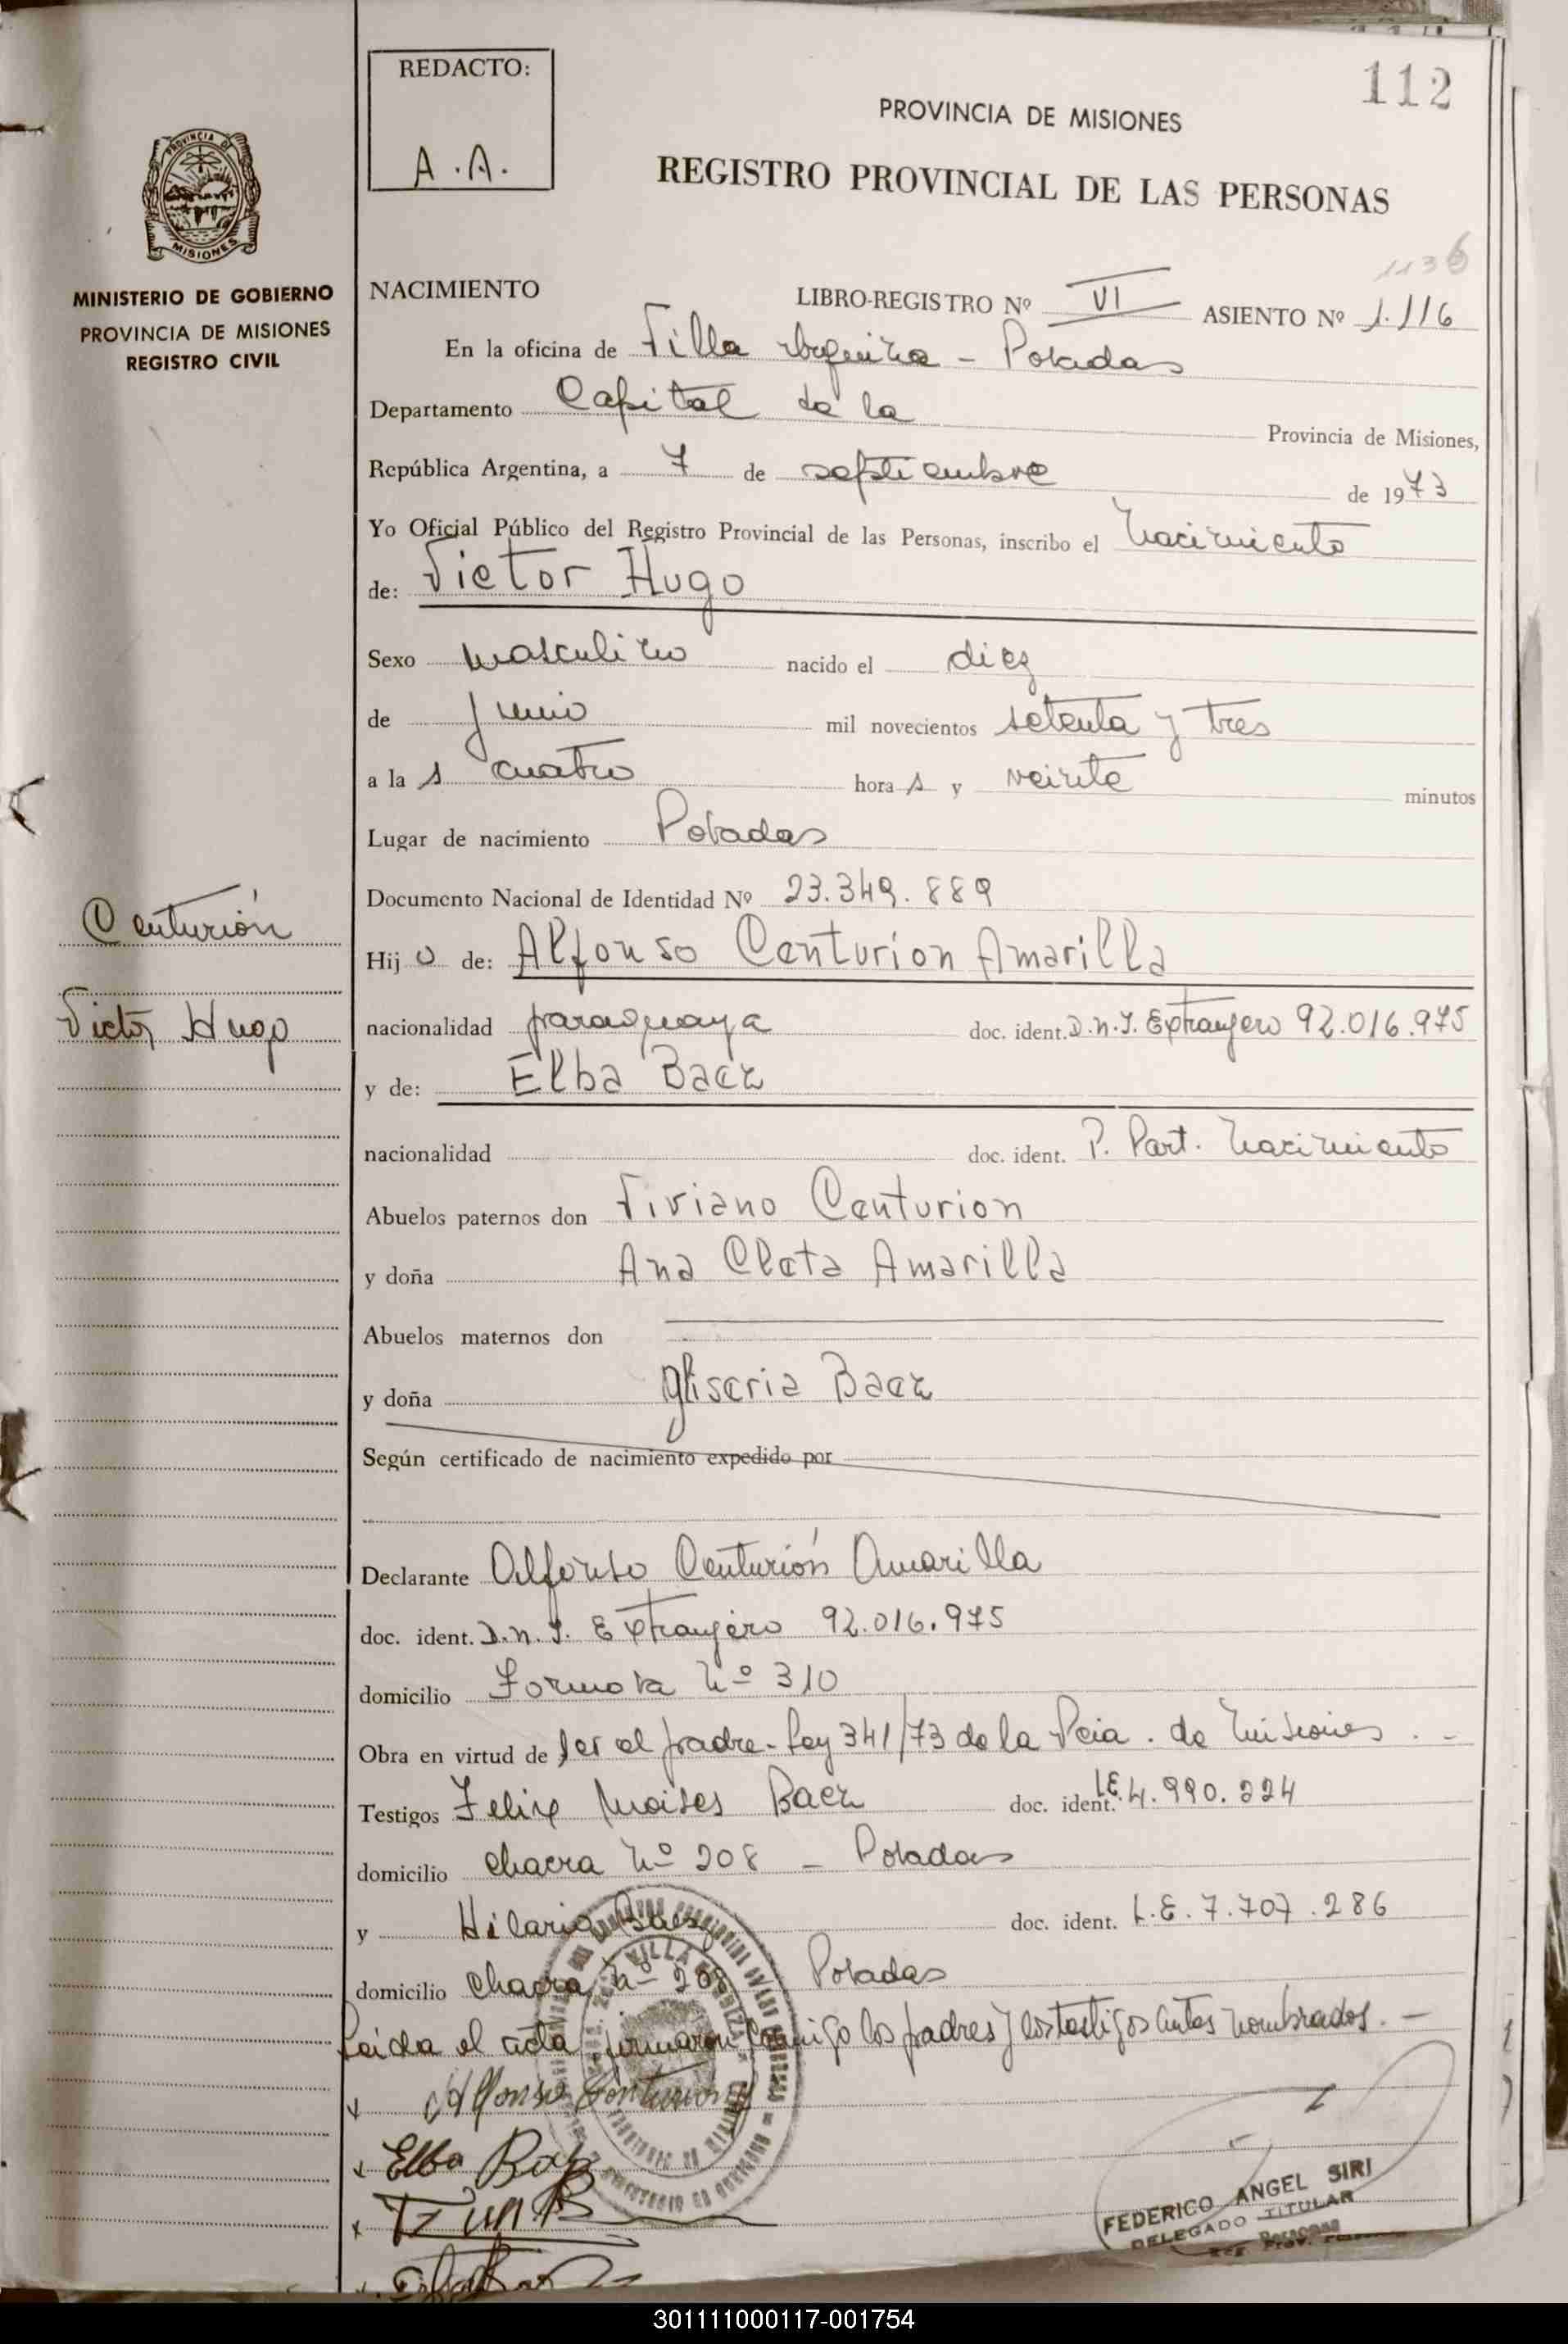 112
REDACTO:
A.A.
PROVINCIA DE MISIONES
REGISTRO PROVINCIAL DE LAS PERSONAS
PROVINCIA DE
MISIONES
MINISTERIO DE GOBIERNO
PROVINCIA DE MISIONES
REGISTRO CIVIL
1136
NACIMIENTO LIBRO-REGISTRO Nº VI ASIENTO Nº 1.116
En la oficina de Villa Urquiza - Posadas
Departamento Capital de la Provincia de Misiones,
República Argentina, a 7 de septiembre de 1973
Yo Oficial Público del Registro Provincial de las Personas, inscribo el Nacimiento
de: Victor Hugo
Sexo masculino nacido el diez
de junio mil novecientos setenta y tres
a la s cuatro hora s y veinte minutos
Lugar de nacimiento Posadas
Documento Nacional de Identidad Nº 23.349.889
Centurión
Victor Hugo
Hij o de: Alfonso Centurion Amarilla
nacionalidad paraguaya doc. ident. D.N.I. Extranjero 92.016.975
y de: Elba Baez
nacionalidad doc. ident. P. Part. Nacimiento
Abuelos paternos don Viviano Centurion
y doña Ana Cleta Amarilla
Abuelos maternos don
y doña Gliseria Baez
Según certificado de nacimiento expedido por
Declarante Alfonso Centurión Amarilla
doc. ident. D.N.I. Extranjero 92.016.975
domicilio Formosa Nº 310
Obra en virtud de ser el padre - Ley 341/73 de la Pcia. de Misiones. -
Testigos Felix Moises Baez doc. ident. L.E. 4.990.224
domicilio chacra Nº 208 - Posadas
y Hilario Baez doc. ident. L.E. 7.707.286
domicilio chacra Nº 208 Posadas
Leída el acta firmaron conmigo los padres y los testigos antes nombrados. -
Alfonso Centurion
Elba Baez
FEDERICO ANGEL SIRI
DELEGADO TITULAR
301111000117-001754